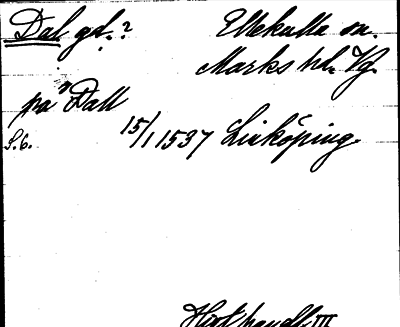 Dal gd.? Ellekulla sn.
Marks hd. Vg.
på "Dall
S.6. 15/1 1537 Linköping
Hist handl. III